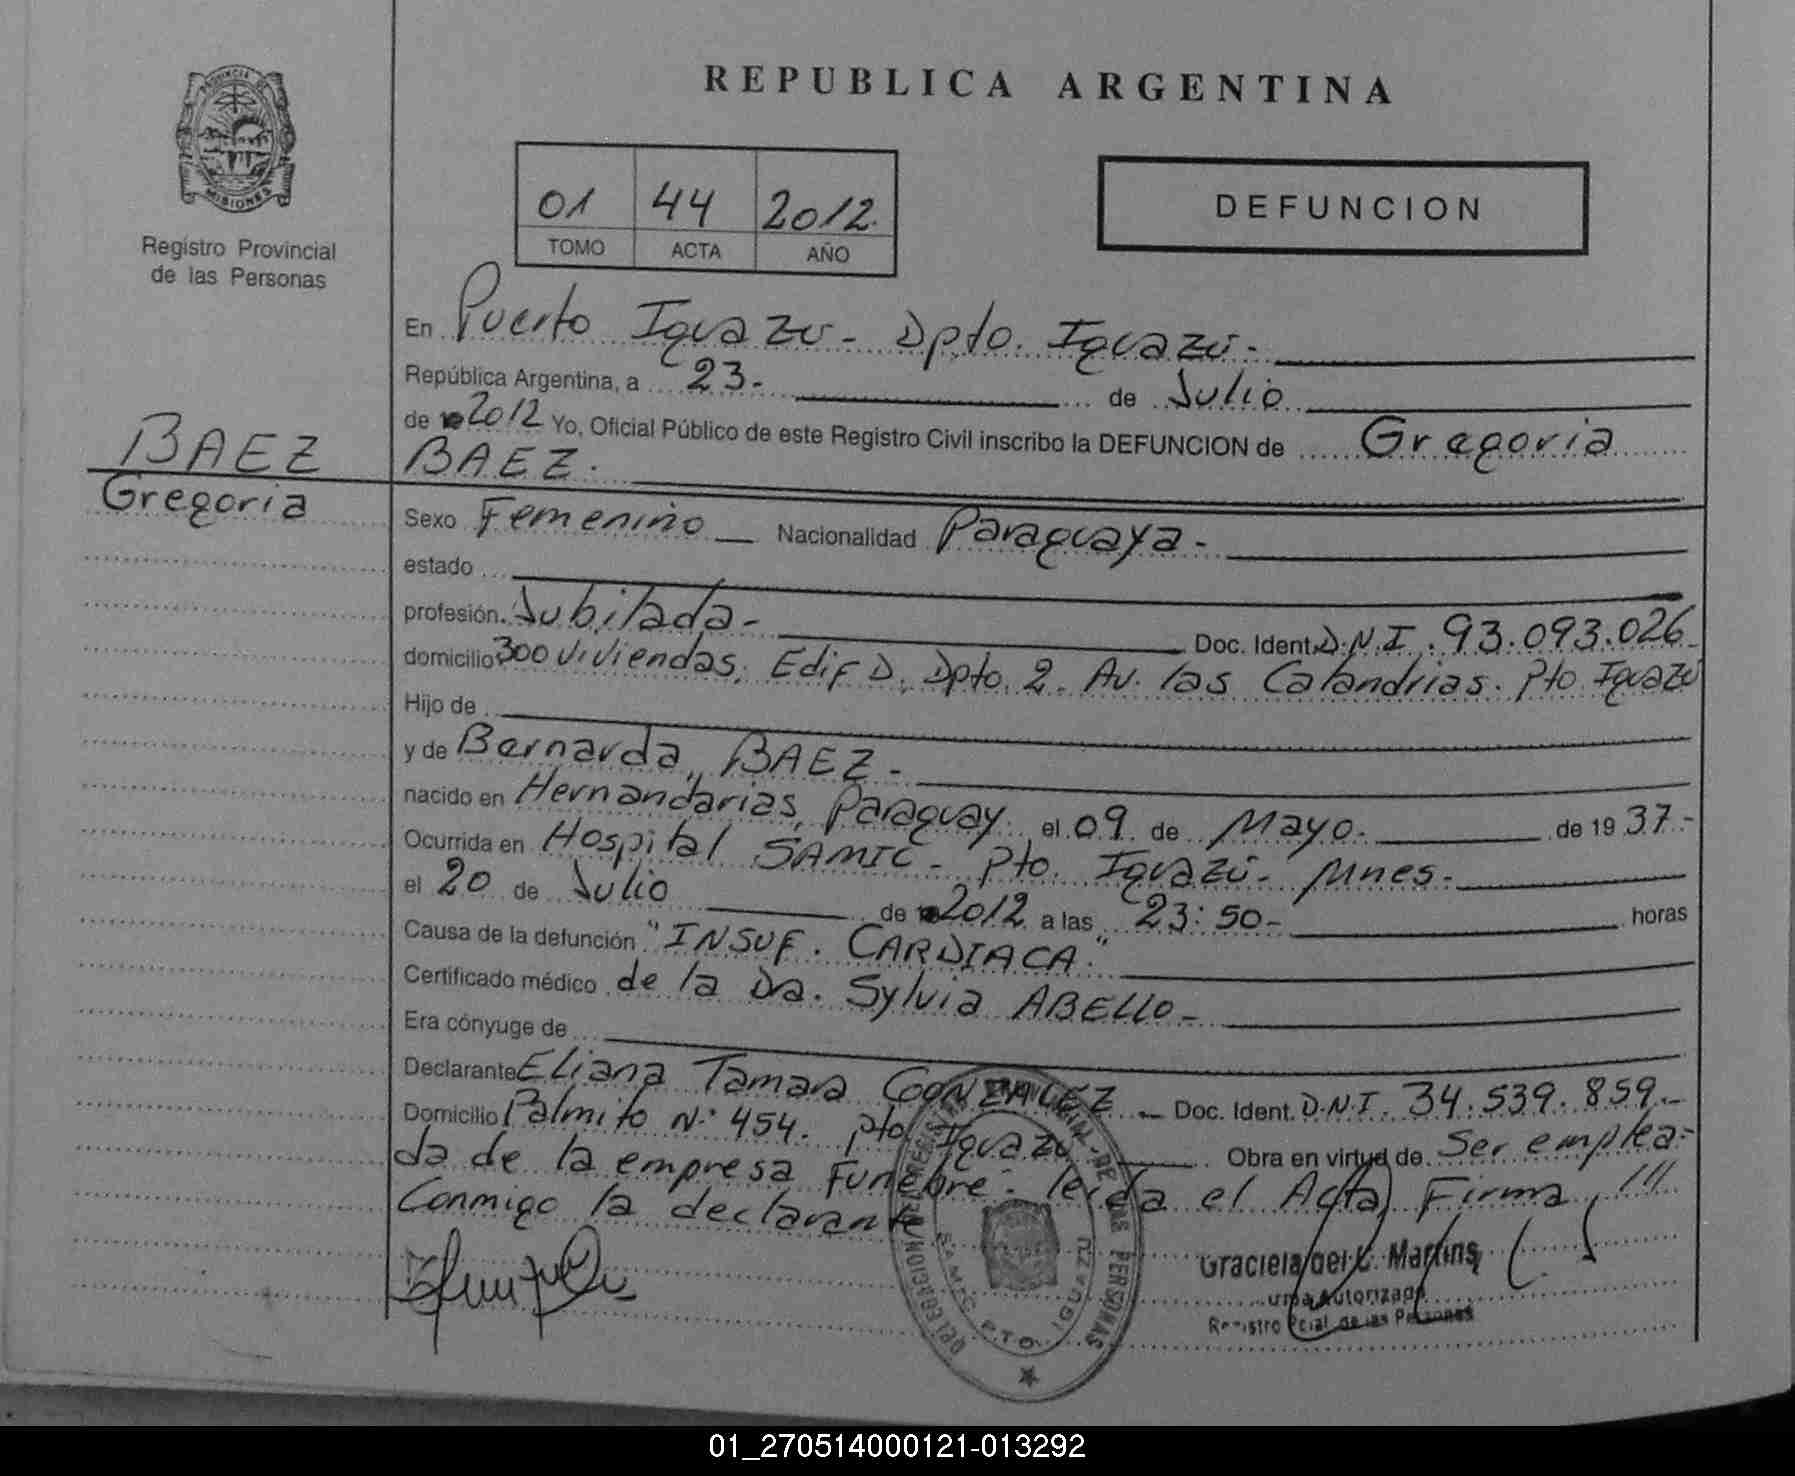 PROVINCIA DE
MISIONES
Registro Provincial
de las Personas
REPUBLICA ARGENTINA
01 44 2012.
TOMO ACTA AÑO
DEFUNCION
En Puerto Iguazú - Dpto. Iguazú -
República Argentina, a 23. de Julio
de 2012 Yo, Oficial Público de este Registro Civil inscribo la DEFUNCION de Gregoria
BAEZ.
BAEZ
Gregoria
Sexo Femenino Nacionalidad Paraguaya -
estado
profesión. Jubilada - Doc. Ident. D.N.I. 93.093.026
domicilio 300 viviendas, Edif D, Dpto. 2. Av. las Calandrias. Pto Iguazú
Hijo de
y de Bernarda, BAEZ -
nacido en Hernandarias, Paraguay. el 09 de Mayo. de 19 37.-
Ocurrida en Hospital SAMIC - Pto. Iguazú - Mnes.
el 20 de Julio de 2012 a las 23:50- horas
Causa de la defunción "INSUF. CARDIACA."
Certificado médico de la Dra. Sylvia ABELLO -
Era cónyuge de
Declarante Eliana Tamara GONZALEZ - Doc. Ident. D.N.I. 34.539.859.-
Domicilio Palmito N° 454. Pto. Iguazú Obra en virtud de Ser emplea-
da de la empresa Funebre - leida el Acta Firma
Conmigo la declarante
Graciela del C. Martins
Firma Autorizada
Registro Pcial. de las Personas
DELEGACION DEL REGISTRO PROVINCIAL DE LAS PERSONAS
SAMIC PTO. IGUAZU
01_270514000121-013292